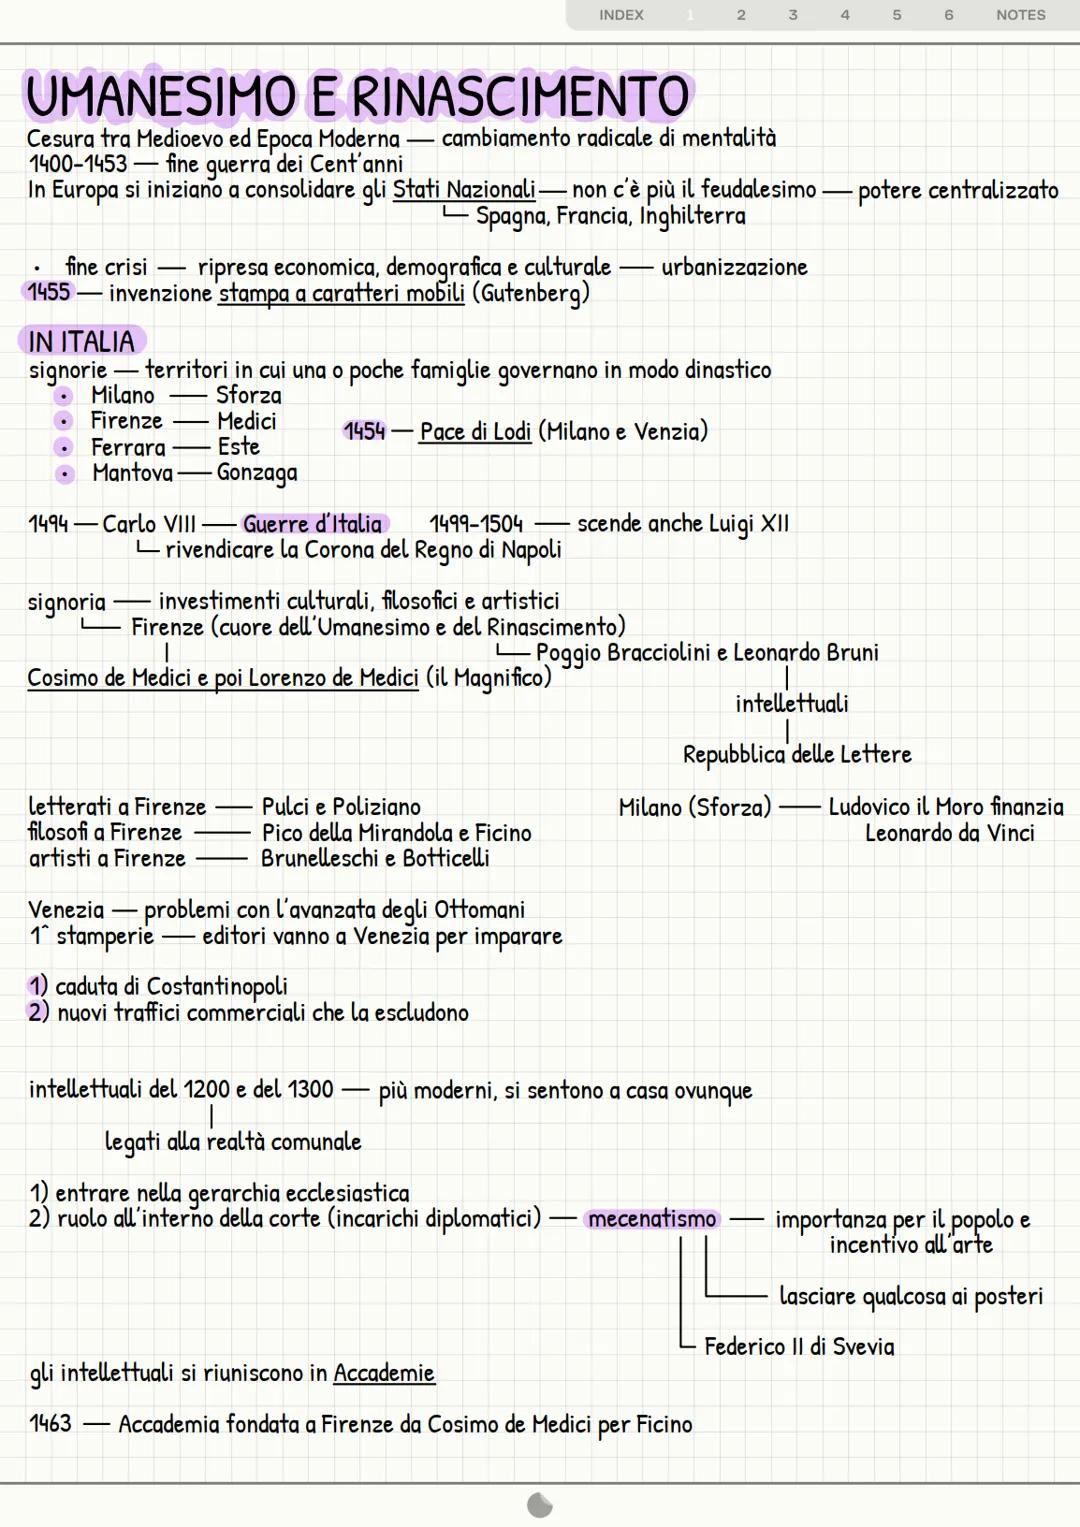 INDEX 1 2 3 4 5 6 NOTES
UMANESIMO E RINASCIMENTO
Cesura tra Medioevo ed Epoca Moderna — cambiamento radicale di mentalità
1400-1453 — fine guerra dei Cent'anni
In Europa si iniziano a consolidare gli Stati Nazionali — non c'è più il feudalesimo — potere centralizzato
Spagna, Francia, Inghilterra
• fine crisi — ripresa economica, demografica e culturale — urbanizzazione
1455 — invenzione stampa a caratteri mobili (Gutenberg)
IN ITALIA
signorie — territori in cui una o poche famiglie governano in modo dinastico
• Milano — Sforza
• Firenze — Medici
1454 — Pace di Lodi (Milano e Venzia)
• Ferrara — Este
• Mantova — Gonzaga
1494 — Carlo VIII — Guerre d'Italia 1499-1504 — scende anche Luigi XII
rivendicare la Corona del Regno di Napoli
signoria — investimenti culturali, filosofici e artistici
Firenze (cuore dell'Umanesimo e del Rinascimento)
Poggio Bracciolini e Leonardo Bruni
Cosimo de Medici e poi Lorenzo de Medici (il Magnifico)
intellettuali
Repubblica delle Lettere
letterati a Firenze — Pulci e Poliziano
filosofi a Firenze — Pico della Mirandola e Ficino
artisti a Firenze — Brunelleschi e Botticelli
Milano (Sforza) — Ludovico il Moro finanzia
Leonardo da Vinci
Venezia — problemi con l'avanzata degli Ottomani
1^ stamperie — editori vanno a Venezia per imparare
1) caduta di Costantinopoli
2) nuovi traffici commerciali che la escludono
intellettuali del 1200 e del 1300 — più moderni, si sentono a casa ovunque
legati alla realtà comunale
1) entrare nella gerarchia ecclesiastica
2) ruolo all'interno della corte (incarichi diplomatici) — mecenatismo — importanza per il popolo e
incentivo all'arte
lasciare qualcosa ai posteri
Federico II di Svevia
gli intellettuali si riuniscono in Accademie
1463 — Accademia fondata a Firenze da Cosimo de Medici per Ficino